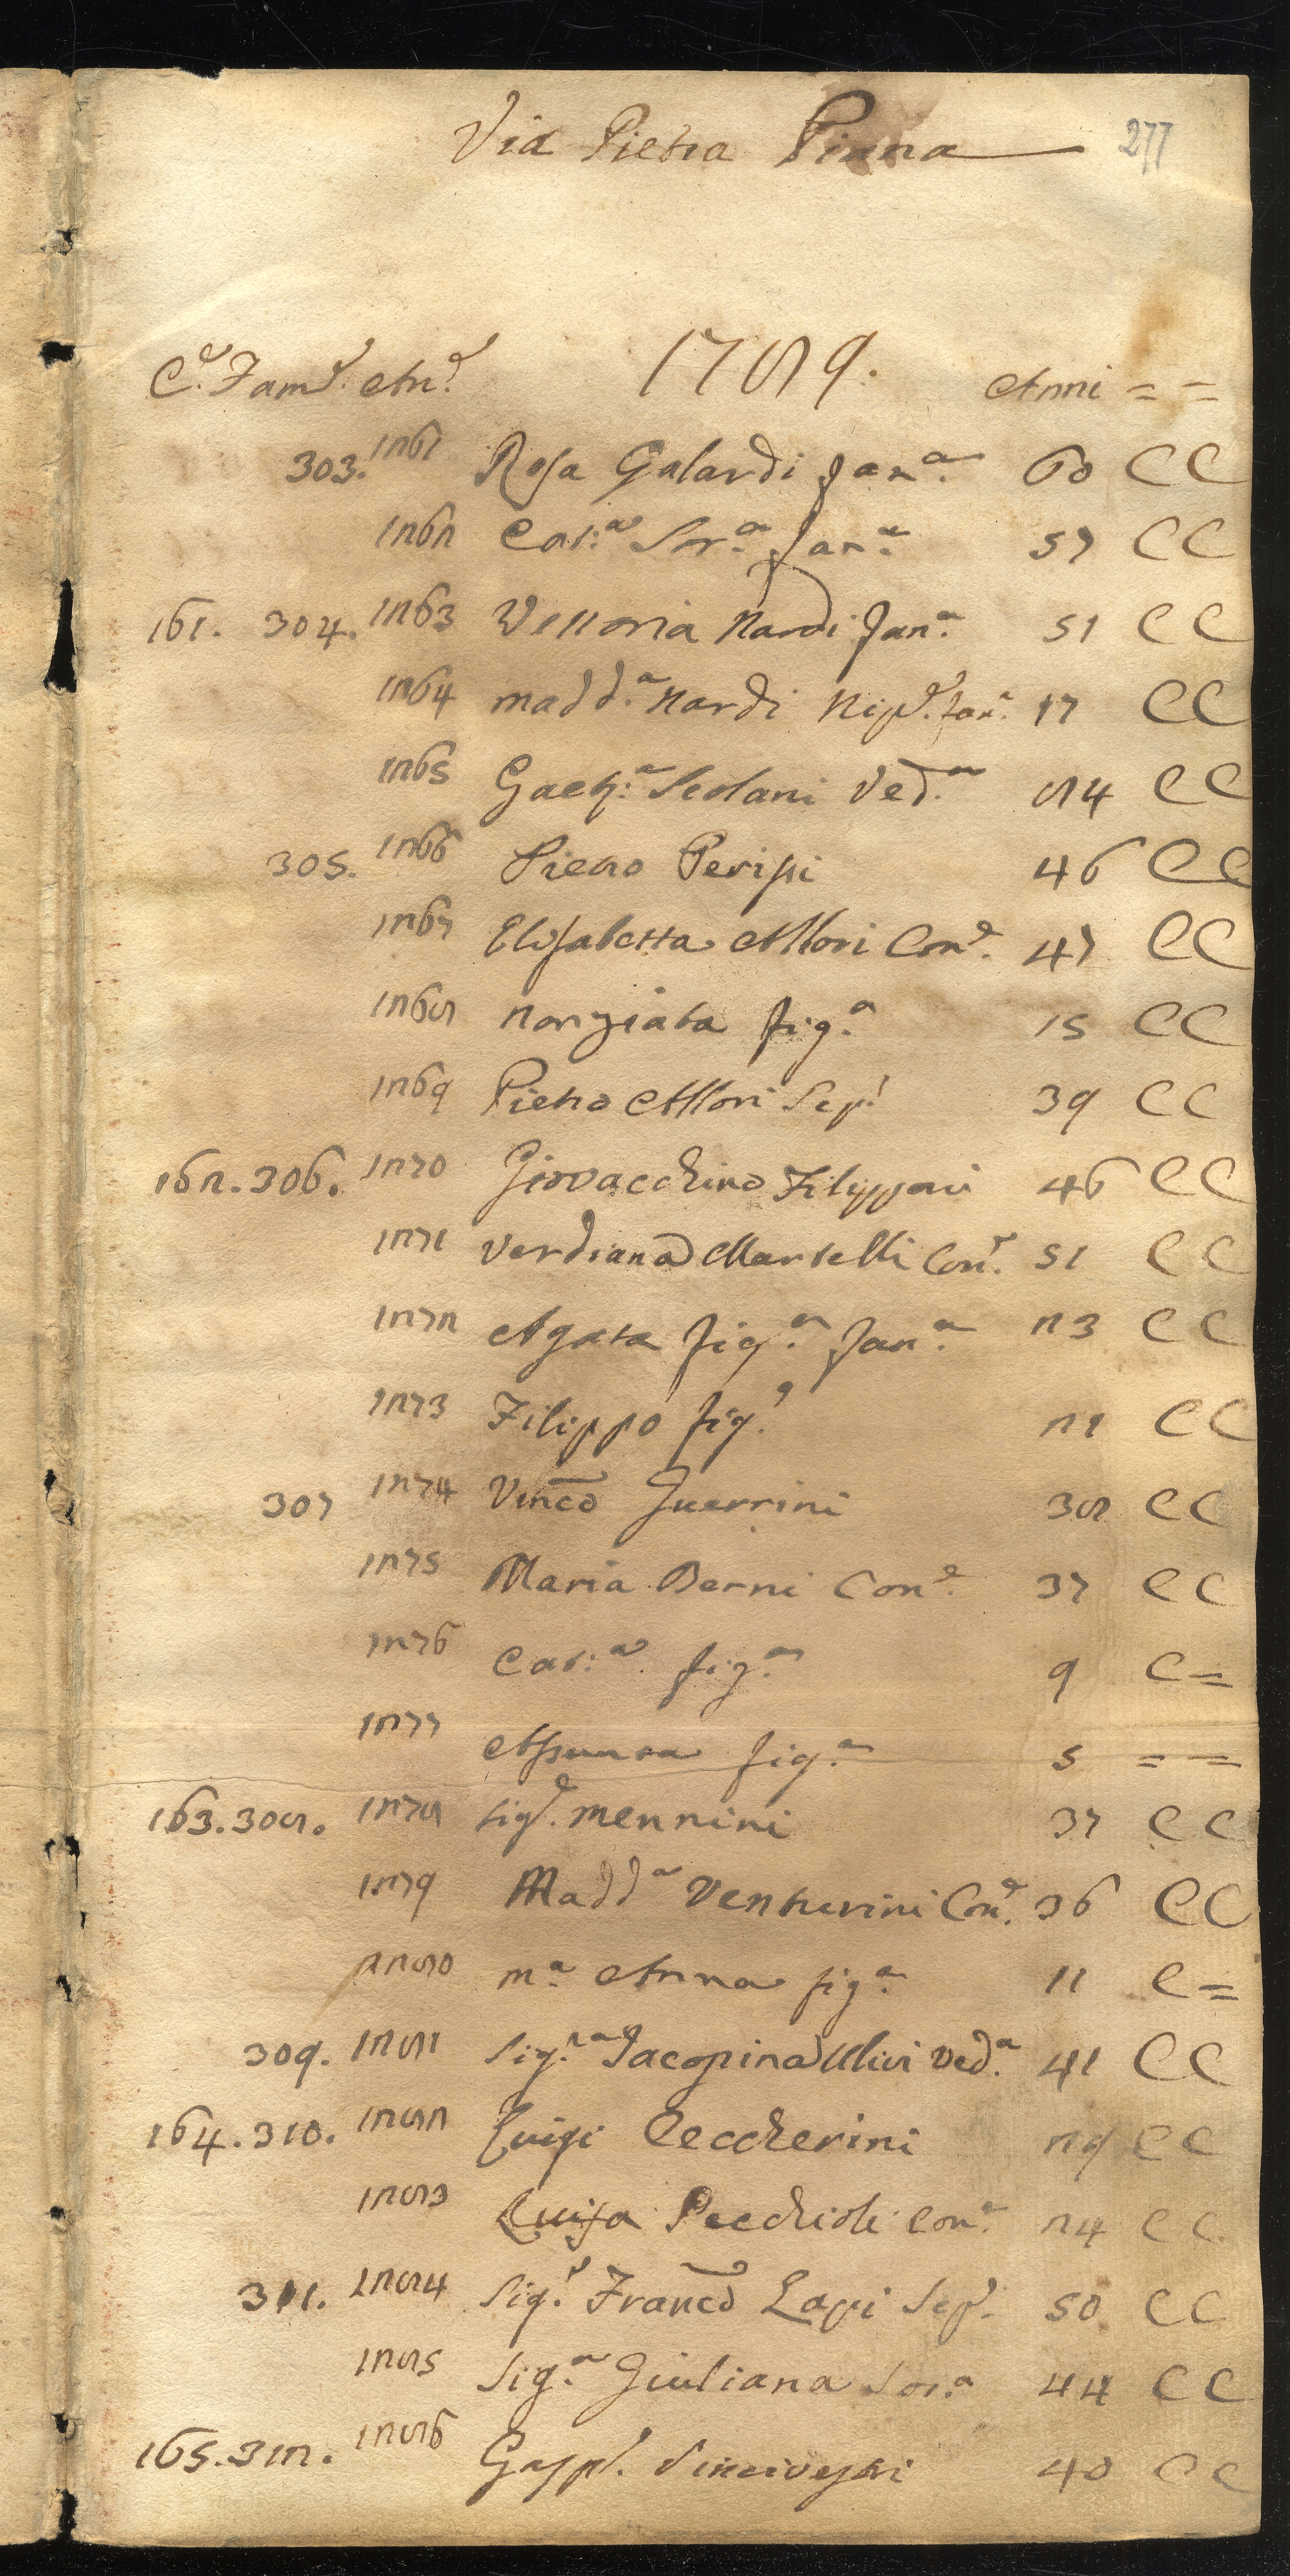 Via Pietra Piana 277
C.e Fam.e An.e 1789. Anni = =
303. 1261 Rosa Galardi Fan.a 60 C C
1262 Cat.a Sor.a Fan.a 57 C C
161. 304. 1263 Vettoria Nardi Fan.a 51 C C
1264 Madd.a Nardi Nip.e Fan.a 17 C C
1265 Gaet.a Scolani Ved.a 84 C C
305. 1266 Pietro Perissi 46 C C
1267 Elisabetta Allori Con.e 47 C C
1268 Nonziata fig.a 15 C C
1269 Pietro Allori Sep! 39 C C
162. 306. 1270 Giovacchino Filipponi 46 C C
1271 Verdiana Martelli Con.e 51 C C
1272 Agata fig.a Fan.a 23 C C
1273 Filippo fig.o 21 C C
307 1274 Vinco Guerrini 38 C C
1275 Maria Berni Con.e 37 C C
1276 Cat.a fig.a 9 C =
1277 Assunta fig.a 5 = =
163. 308. 1278 Sig.e Mennini 37 C C
1279 Madd.a Venturini Con.e 36 C C
1280 M.a Anna fig.a 11 C =
309. 1281 Sig.ra Jacopina Ulivi Ved.a 41 C C
164. 310. 1282 Luigi Ceccherini 29 C C
1283 Luisa Pecchioli Con.e 24 C C
311. 1284 Sig.e Franco Lapi Sep.e 50 C C
1285 Sig.a Giuliana Sor.a 44 C C
165. 312. 1286 Gasp.e 40 C C